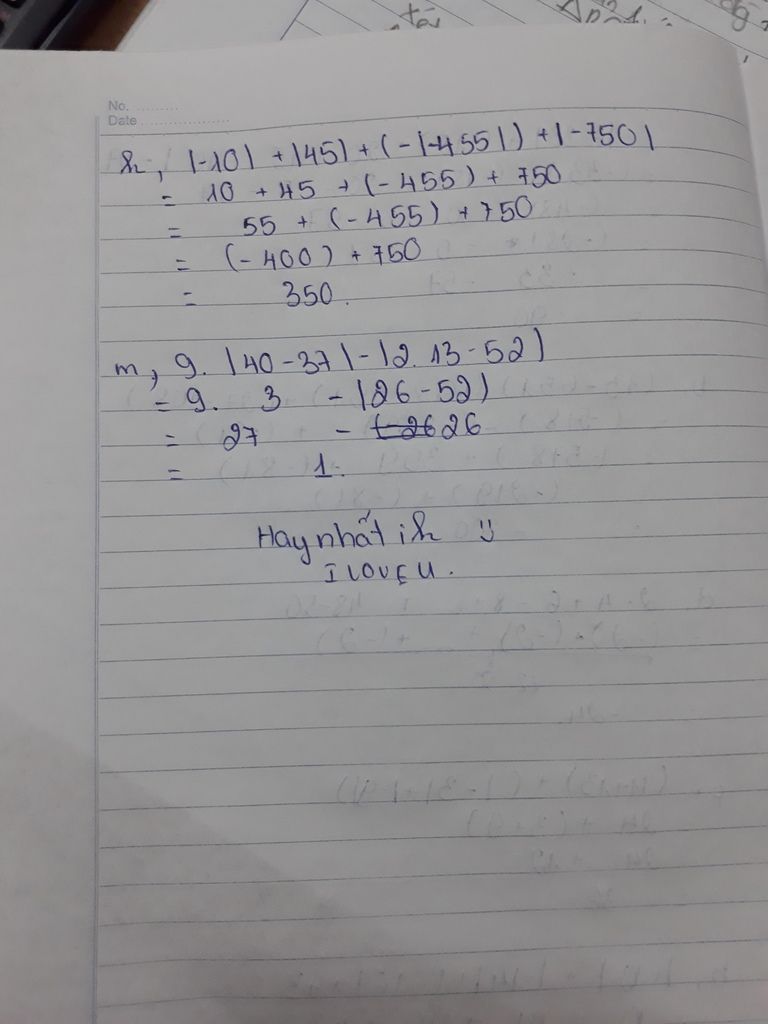 No. .........
Date ...................
h, |-10| + |45| + (-|-455|) + |-750|
= 10 + 45 + (-455) + 750
= 55 + (-455) + 750
= (-400) + 750
= 350.
m, 9. |40-37| - |2.13-52|
= 9. 3 - |26-52|
= 27 - 26
= 1.
Hay nhất ih :)
I LOVE U.